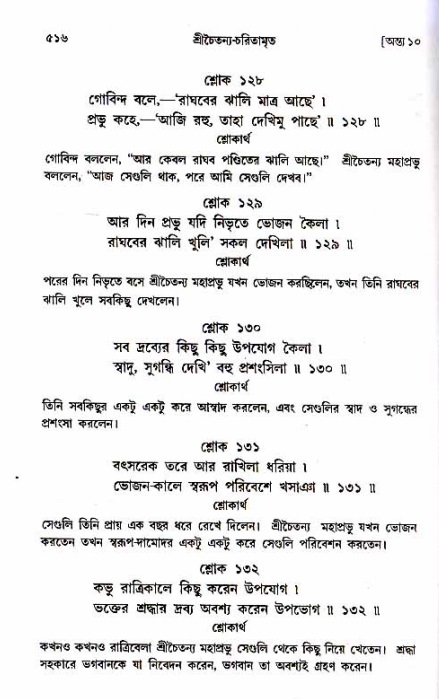 ৫১৬ শ্রীচৈতন্য-চরিতামৃত [অন্ত্য ১০
শ্লোক ১২৮
গোবিন্দ বলে,—'রাঘবের ঝালি মাত্র আছে' ।
প্রভু কহে,—'আজি রহু, তাহা দেখিমু পাছে' ॥ ১২৮ ॥
শ্লোকার্থ
গোবিন্দ বললেন, "আর কেবল রাঘব পণ্ডিতের ঝালি আছে।" শ্রীচৈতন্য মহাপ্রভু
বললেন, "আজ সেগুলি থাক, পরে আমি সেগুলি দেখব।"
শ্লোক ১২৯
আর দিন প্রভু যদি নিভৃতে ভোজন কৈলা ।
রাঘবের ঝালি খুলি' সকল দেখিলা ॥ ১২৯ ॥
শ্লোকার্থ
পরের দিন নিভৃতে বসে শ্রীচৈতন্য মহাপ্রভু যখন ভোজন করছিলেন, তখন তিনি রাঘবের
ঝালি খুলে সবকিছু দেখলেন।
শ্লোক ১৩০
সব দ্রব্যের কিছু কিছু উপযোগ কৈলা ।
স্বাদু, সুগন্ধি দেখি' বহু প্রশংসিলা ॥ ১৩০ ॥
শ্লোকার্থ
তিনি সবকিছুর একটু একটু করে আস্বাদ করলেন, এবং সেগুলির স্বাদ ও সুগন্ধের
প্রশংসা করলেন।
শ্লোক ১৩১
বৎসরেক তরে আর রাখিলা ধরিয়া ।
ভোজন-কালে স্বরূপ পরিবেশে খসাঞা ॥ ১৩১ ॥
শ্লোকার্থ
সেগুলি তিনি প্রায় এক বছর ধরে রেখে দিলেন। শ্রীচৈতন্য মহাপ্রভু যখন ভোজন
করতেন তখন স্বরূপ-দামোদর একটু একটু করে সেগুলি পরিবেশন করতেন।
শ্লোক ১৩২
কভু রাত্রিকালে কিছু করেন উপযোগ ।
ভক্তের শ্রদ্ধার দ্রব্য অবশ্য করেন উপভোগ ॥ ১৩২ ॥
শ্লোকার্থ
কখনও কখনও রাত্রিবেলা শ্রীচৈতন্য মহাপ্রভু সেগুলি থেকে কিছু নিয়ে খেতেন। শ্রদ্ধা
সহকারে ভগবানকে যা নিবেদন করেন, ভগবান তা অবশ্যই গ্রহণ করেন।